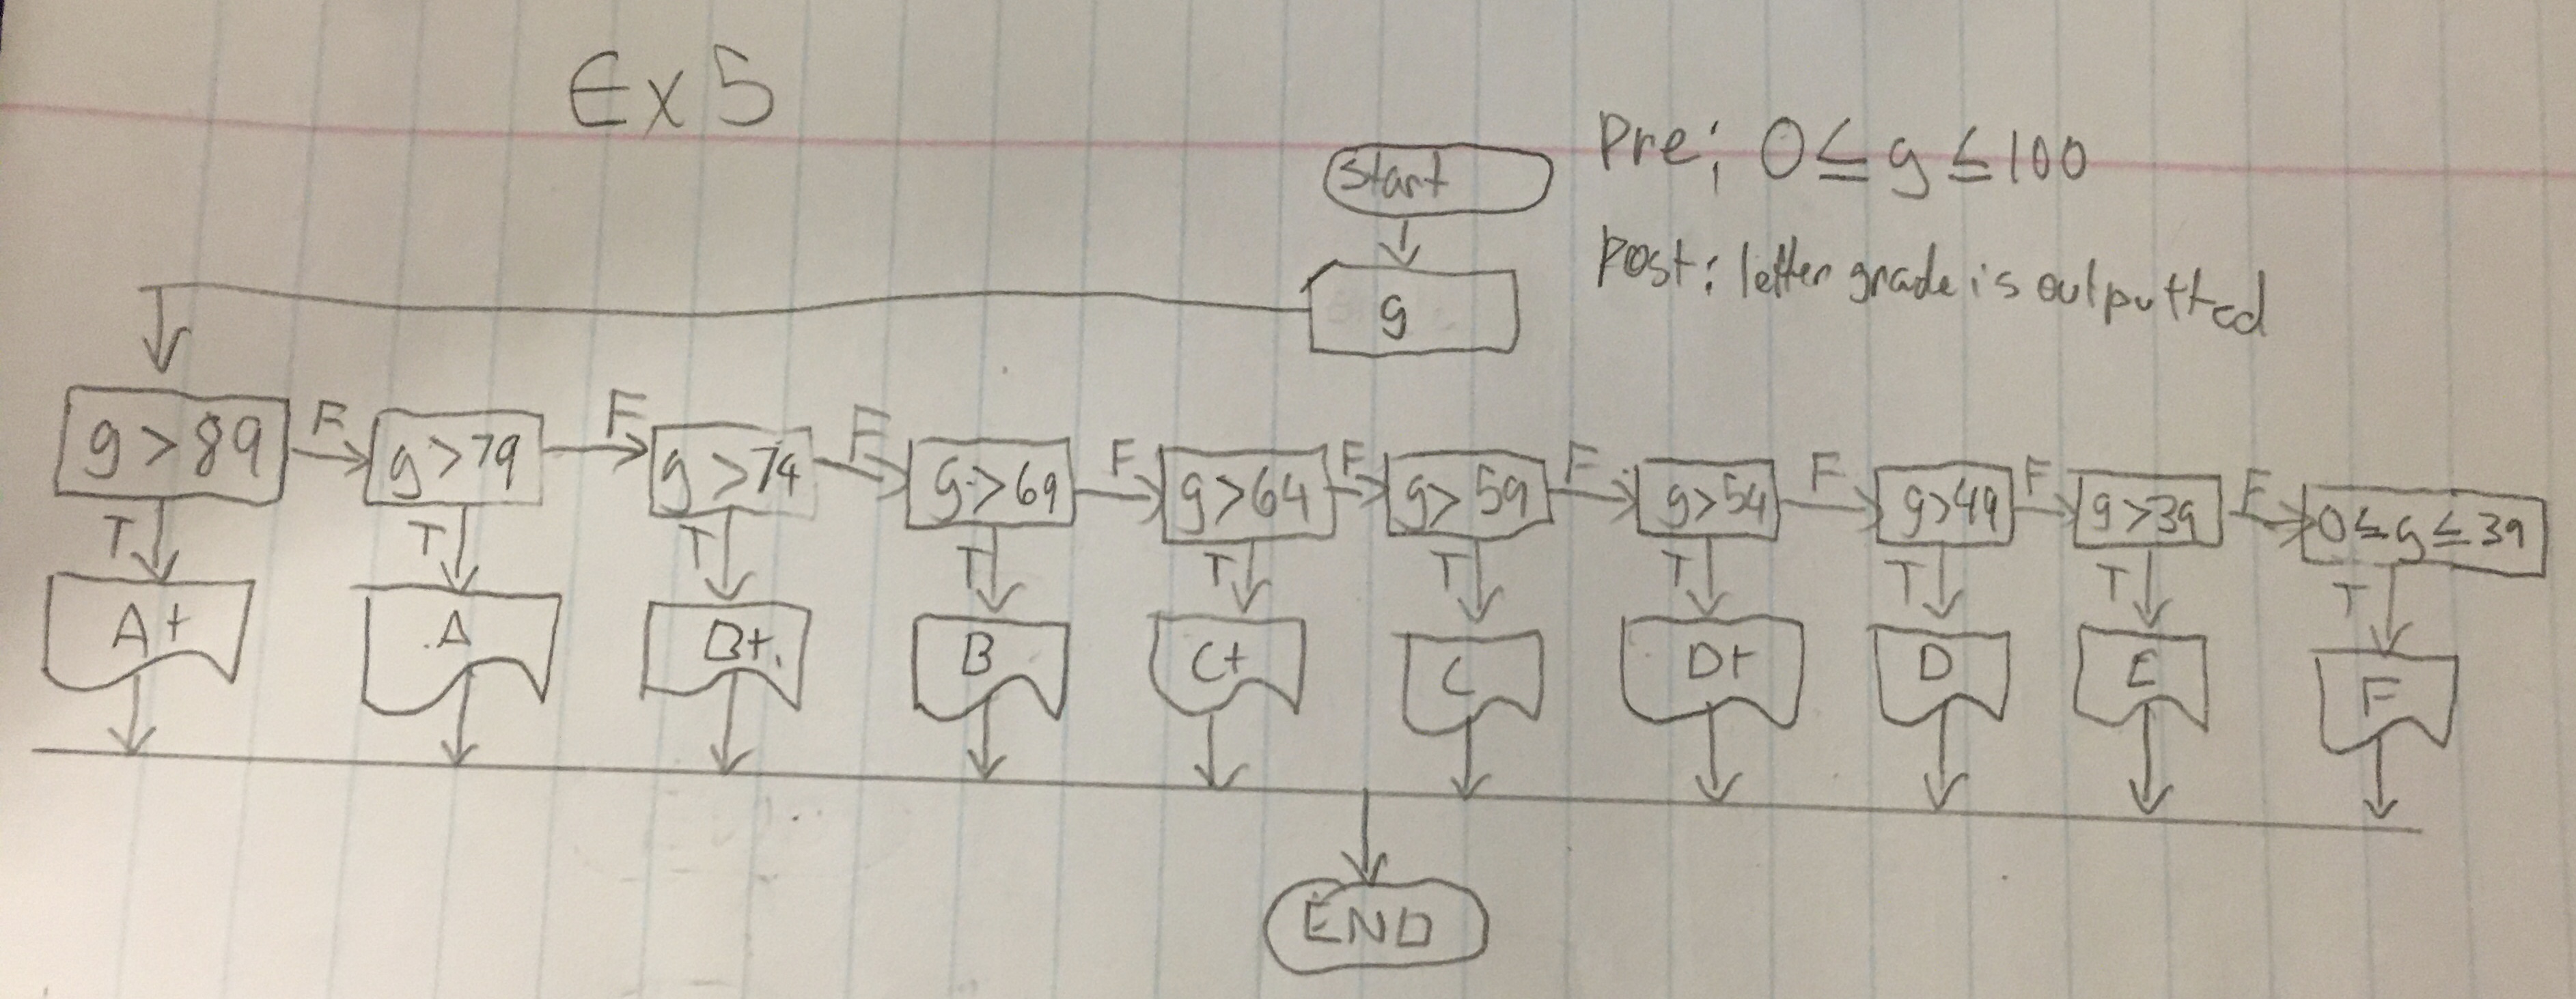 Ex 5
Start
Pre: 0 ≤ g ≤ 100
g
Post: letter grade is outputted
g > 89 F g > 79 F g > 74 F g > 69 F g > 64 F g > 59 F g > 54 F g > 49 F g > 39 F 0 ≤ g ≤ 39
T T T T T T T T T T
A+ A B+ B C+ C D+ D E F
END